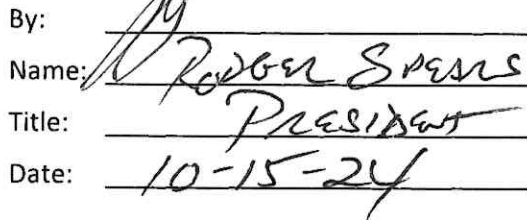 By:
Name: RODGER SPEARS
Title: PRESIDENT
Date: 10-15-24